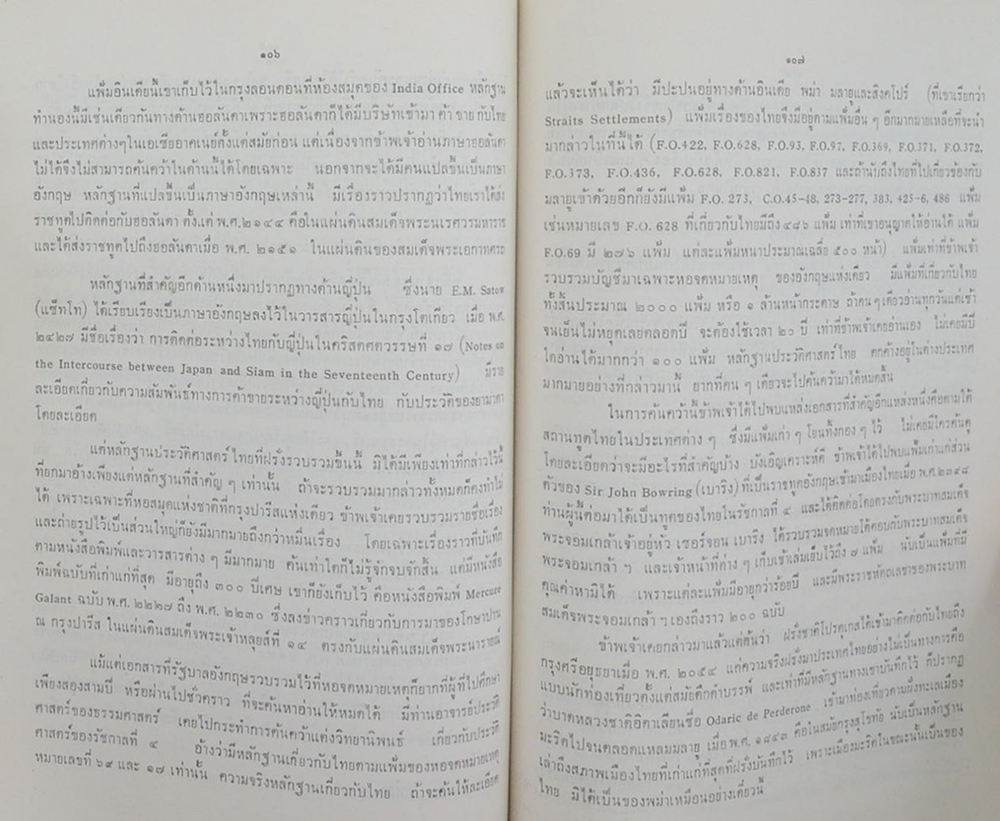 ๑๐๖
แฟ้มอินเดียนี้เขาเก็บไว้ในกรุงลอนดอนที่ห้องสมุดของ India Office หลักฐาน
ทำนองนี้มีเช่นเดียวกันทางด้านฮอลันดาเพราะฮอลันดาก็ได้มีบริษัทเข้ามา ค้า ขาย กับไทย
และประเทศต่างๆในเอเซียอาคเนย์ตั้งแต่สมัยก่อน แต่เนื่องจากข้าพเจ้าอ่านภาษาฮอลันดา
ไม่ได้จึงไม่สามารถค้นคว้าในด้านนี้ได้โดยเฉพาะ นอกจากจะได้มีคนแปลขึ้นเป็นภาษา
อังกฤษ หลักฐานที่แปลขึ้นเป็นภาษาอังกฤษเหล่านี้ มีเรื่องราวปรากฏว่าไทยเราได้ส่ง
ราชทูตไปติดต่อกับฮอลันดา ตั้งแต่ พ.ศ.๒๑๔๔ คือในแผ่นดินสมเด็จพระนเรศวรมหาราช
และได้ส่งราชทูตไปถึงฮอลันดาเมื่อ พ.ศ. ๒๑๕๑ ในแผ่นดินของสมเด็จพระเอกาทศรถ
หลักฐานที่สำคัญอีกด้านหนึ่งมาปรากฏทางด้านญี่ปุ่น ซึ่งนาย E.M. Satow
(แซ็ทโท) ได้เรียบเรียงเป็นภาษาอังกฤษลงไว้ในวารสารญี่ปุ่นในกรุงโตเกียว เมื่อ พ.ศ.
๒๔๒๗ มีชื่อเรื่องว่า การติดต่อระหว่างไทยกับญี่ปุ่นในคริสตศตวรรษที่ ๑๗ (Notes on
the Intercourse between Japan and Siam in the Seventeenth Century) มีราย
ละเอียดเกี่ยวกับความสัมพันธ์ทางการค้าขายระหว่างญี่ปุ่นกับไทย กับประวัติของยามาดา
โดยละเอียด
แต่หลักฐานประวัติศาสตร์ไทยที่ฝรั่งรวบรวมขึ้นนี้ มิได้มีเพียงเท่าที่กล่าวไว้นี้
ที่ยกมาอ้างเพียงแต่หลักฐานที่สำคัญ ๆ เท่านั้น ถ้าจะรวบรวมมากล่าวทั้งหมดก็คงทำไม่
ได้ เพราะเฉพาะที่หอสมุดแห่งชาติที่กรุงปารีสแห่งเดียว ข้าพเจ้าเคยรวบรวมรายชื่อเรื่อง
และถ่ายรูปไว้เป็นส่วนใหญ่ก็ยังมีมากมายถึงกว่าหมื่นเรื่อง โดยเฉพาะเรื่องราวที่บันทึก
ตามหนังสือพิมพ์และวารสารต่าง ๆ มีมากมาย ค้นเท่าใดก็ไม่รู้จักจบจักสิ้น แต่มีหนังสือ
พิมพ์ฉบับที่เก่าแก่ที่สุด มีอายุถึง ๓๐๐ ปีเศษ เขาก็ยังเก็บไว้ คือหนังสือพิมพ์ Mercure
Galant ฉบับ พ.ศ. ๒๒๒๗ ถึง พ.ศ. ๒๒๓๐ ซึ่งลงข่าวคราวเกี่ยวกับการมาของโกษาปาน
ณ กรุงปารีส ในแผ่นดินสมเด็จพระเจ้าหลุยส์ที่ ๑๔ ตรงกับแผ่นดินสมเด็จพระนารายณ์
แม้แต่เอกสารที่รัฐบาลอังกฤษรวบรวมไว้ที่หอจดหมายเหตุก็ยากที่ผู้ที่ไปศึกษา
เพียงสองสามปี หรือผ่านไปชั่วคราว ที่จะค้นหาอ่านให้หมดได้ มีท่านอาจารย์ประวัติ
ศาสตร์ของธรรมศาสตร์ เคยไปกระทำการค้นคว้าแต่งวิทยานิพนธ์ เกี่ยวกับประวัติ
ศาสตร์ของรัชกาลที่ ๔ อ้างว่ามีหลักฐานเกี่ยวกับไทยตามแฟ้มของหอจดหมายเหตุ
หมายเลขที่ ๖๙ และ ๑๗ เท่านั้น ความจริงหลักฐานเกี่ยวกับไทย ถ้าจะค้นให้ละเอียด
๑๐๗
แล้วจะเห็นได้ว่า มีปะปนอยู่ทางด้านอินเดีย พม่า มลายูและสิงคโปร์ (ที่เขาเรียกว่า
Straits Settlements) แฟ้มเรื่องของไทยจึงมีอยู่ตามแฟ้มอื่น ๆ อีกมากมายเหลือที่จะนำ
มากล่าวในที่นี้ได้ (F.O.422, F.O.628, F.O.93, F.O.97, F.O.369, F.O.371, F.O.372,
F.O.373, F.O.436, F.O.628, F.O.821, F.O.837 และถ้านับถึงไทยที่ไปเกี่ยวข้องกับ
มลายูเข้าด้วยอีกก็ยังมีแฟ้ม F.O. 273, C.O.45-48, 273-277, 383, 425-6, 486 แฟ้ม
เช่นหมายเลข F.O. 628 ที่เกี่ยวกับไทยมีถึง ๔๘๖ แฟ้ม เท่าที่เขาอนุญาตให้อ่านได้ แฟ้ม
F.O.69 มี ๒๗๖ แฟ้ม แต่ละแฟ้มหนาประมาณเฉลี่ย ๕๐๐ หน้า) แฟ้มเท่าที่ข้าพเจ้า
รวบรวมบัญชีมาเฉพาะหอจดหมายเหตุ ของอังกฤษแห่งเดียว มีแฟ้มที่เกี่ยวกับไทย
ทั้งสิ้นประมาณ ๒๐๐๐ แฟ้ม หรือ ๑ ล้านหน้ากระดาษ ถ้าคน ๆ เดียวอ่านทุกวันแต่เช้า
จนเย็นไม่หยุดเลยตลอดปี จะต้องใช้เวลา ๒๐ ปี เท่าที่ข้าพเจ้าเคยอ่านเอง ไม่เคยมีปี
ใดอ่านได้มากกว่า ๑๐๐ แฟ้ม หลักฐานประวัติศาสตร์ไทย ตกค้างอยู่ในต่างประเทศ
มากมายอย่างที่กล่าวมานี้ ยากที่คน ๆ เดียวจะไปค้นคว้ามาได้หมดสิ้น
ในการค้นคว้านี้ข้าพเจ้าได้ไปพบแหล่งเอกสารที่สำคัญอีกแหล่งหนึ่งคือตามใต้
สถานทูตไทยในประเทศต่าง ๆ ซึ่งมีแฟ้มเก่า ๆ โยนทิ้งกอง ๆ ไว้ ไม่เคยมีใครค้นดู
โดยละเอียดว่าจะมีอะไรที่สำคัญบ้าง บังเอิญเคราะห์ดี ข้าพเจ้าได้ไปพบแฟ้มเก่าแก่ส่วน
ตัวของ Sir John Bowring (เบาริง) ที่เป็นราชทูตอังกฤษเข้ามาเมืองไทยเมื่อ พ.ศ.๒๓๙๘
ท่านผู้นี้ต่อมาได้เป็นทูตของไทยในรัชกาลที่ ๔ และได้ติดต่อโดยตรงกับพระบาทสมเด็จ
พระจอมเกล้าเจ้าอยู่หัว เซอร์จอน เบาริง ได้รวบรวมจดหมายโต้ตอบกับพระบาทสมเด็จ
พระจอมเกล้า ฯ และเจ้าหน้าที่ต่าง ๆ เก็บเข้าเล่มเย็บไว้ถึง ๗ แฟ้ม นับเป็นแฟ้มที่มี
คุณค่าหามิได้ เพราะแต่ละแฟ้มมีอายุกว่าร้อยปี และมีพระราชหัตถเลขาของพระบาท
สมเด็จพระจอมเกล้า ฯ เองถึงราว ๒๐๐ ฉบับ
ข้าพเจ้าเคยกล่าวมาแล้วแต่ต้นว่า ฝรั่งชาติโปรตุเกสได้เข้ามาติดต่อกับไทยถึง
กรุงศรีอยุธยาเมื่อ พ.ศ. ๒๐๕๔ แต่ความจริงฝรั่งมาประเทศไทยอย่างไม่เป็นทางการคือ
แบบนักท่องเที่ยวตั้งแต่สมัยดึกดำบรรพ์ และเท่าที่มีหลักฐานทางเขาบันทึกไว้ ก็ปรากฏ
ว่าบาดหลวงชาติอิตาเลียนชื่อ Odaric de Perderone เข้ามาท่องเที่ยวตามฝั่งทะเลเมือง
มะริดไปจนตลอดแหลมมลายู เมื่อ พ.ศ. ๑๘๔๓ คือในสมัยกรุงสุโขทัย นับเป็นหลักฐาน
เล่าถึงสภาพเมืองไทยที่เก่าแก่ที่สุดที่ฝรั่งบันทึกไว้ เพราะเมืองมะริดในขณะนั้นเป็นของ
ไทย มิได้เป็นของพม่าเหมือนอย่างเดี๋ยวนี้